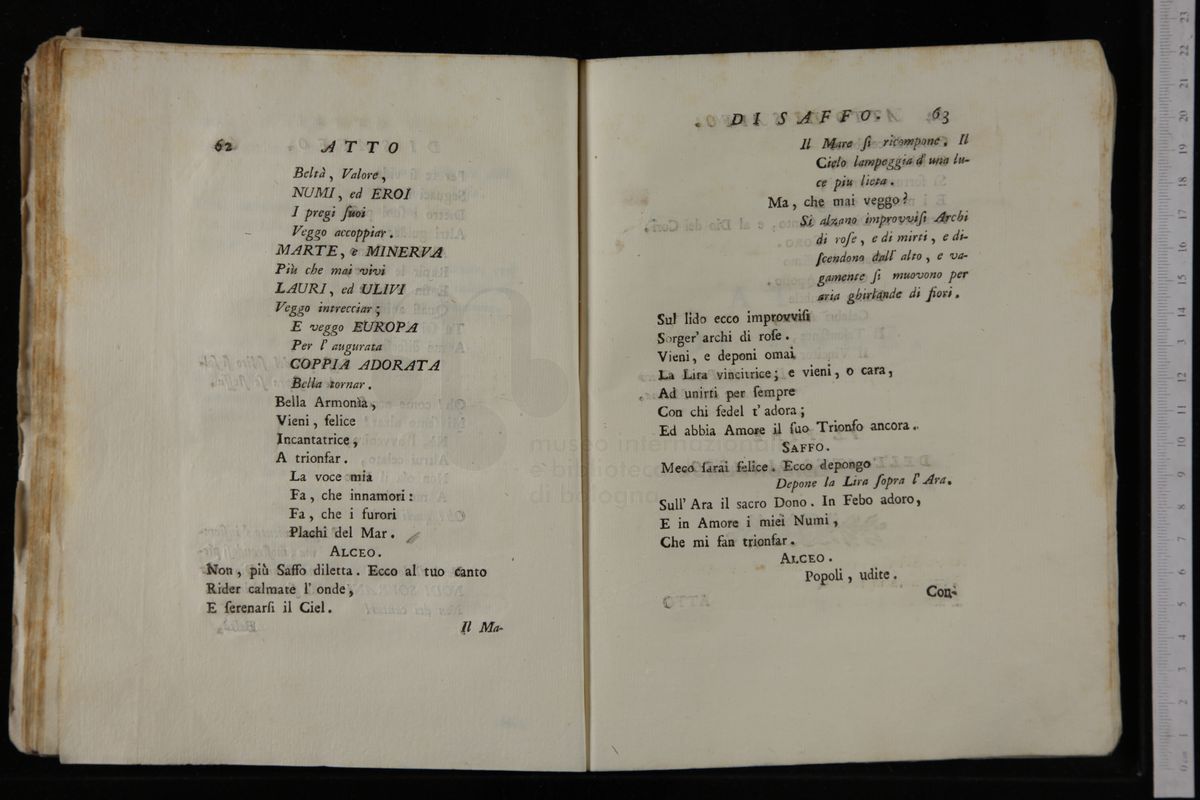 62 ATTO
Beltà, Valore,
NUMI, ed EROI
I pregi ſuoi
Veggo accoppiar.
MARTE, e MINERVA
Più che mai vivi
LAURI, ed ULIVI
Veggo intrecciar;
E veggo EUROPA
Per l' augurata
COPPIA ADORATA
Bella tornar.
Bella Armonìa,
Vieni, felice
Incantatrice,
A trionfar.
La voce mia
Fa, che innamori:
Fa, che i furori
Plachi del Mar.
ALCEO.
Non, più Saffo diletta. Ecco al tuo canto
Rider calmate l' onde,
E ſerenarſi il Ciel.
Il Ma-
DI SAFFO. 63
Il Mare ſi ricompone. Il
Cielo lampeggia d' una lu-
ce piu lieta.
Ma, che mai veggo?
Si alzano improvviſi Archi
di roſe, e di mirti, e di-
ſcendono dall' alto, e va-
gamente ſi muovono per
aria ghirlande di fiori.
Sul lido ecco improvviſi
Sorger' archi di roſe.
Vieni, e deponi omai
La Lira vincitrice; e vieni, o cara,
Ad unirti per ſempre
Con chi fedel t' adora;
Ed abbia Amore il ſuo Trionfo ancora.
SAFFO.
Meco ſarai felice. Ecco depongo
Depone la Lira ſopra l' Ara.
Sull' Ara il sacro Dono. In Febo adoro,
E in Amore i miei Numi,
Che mi fan trionfar.
ALCEO.
Popoli, udite.
Con-
museo internazionale
e biblioteca
di bologna